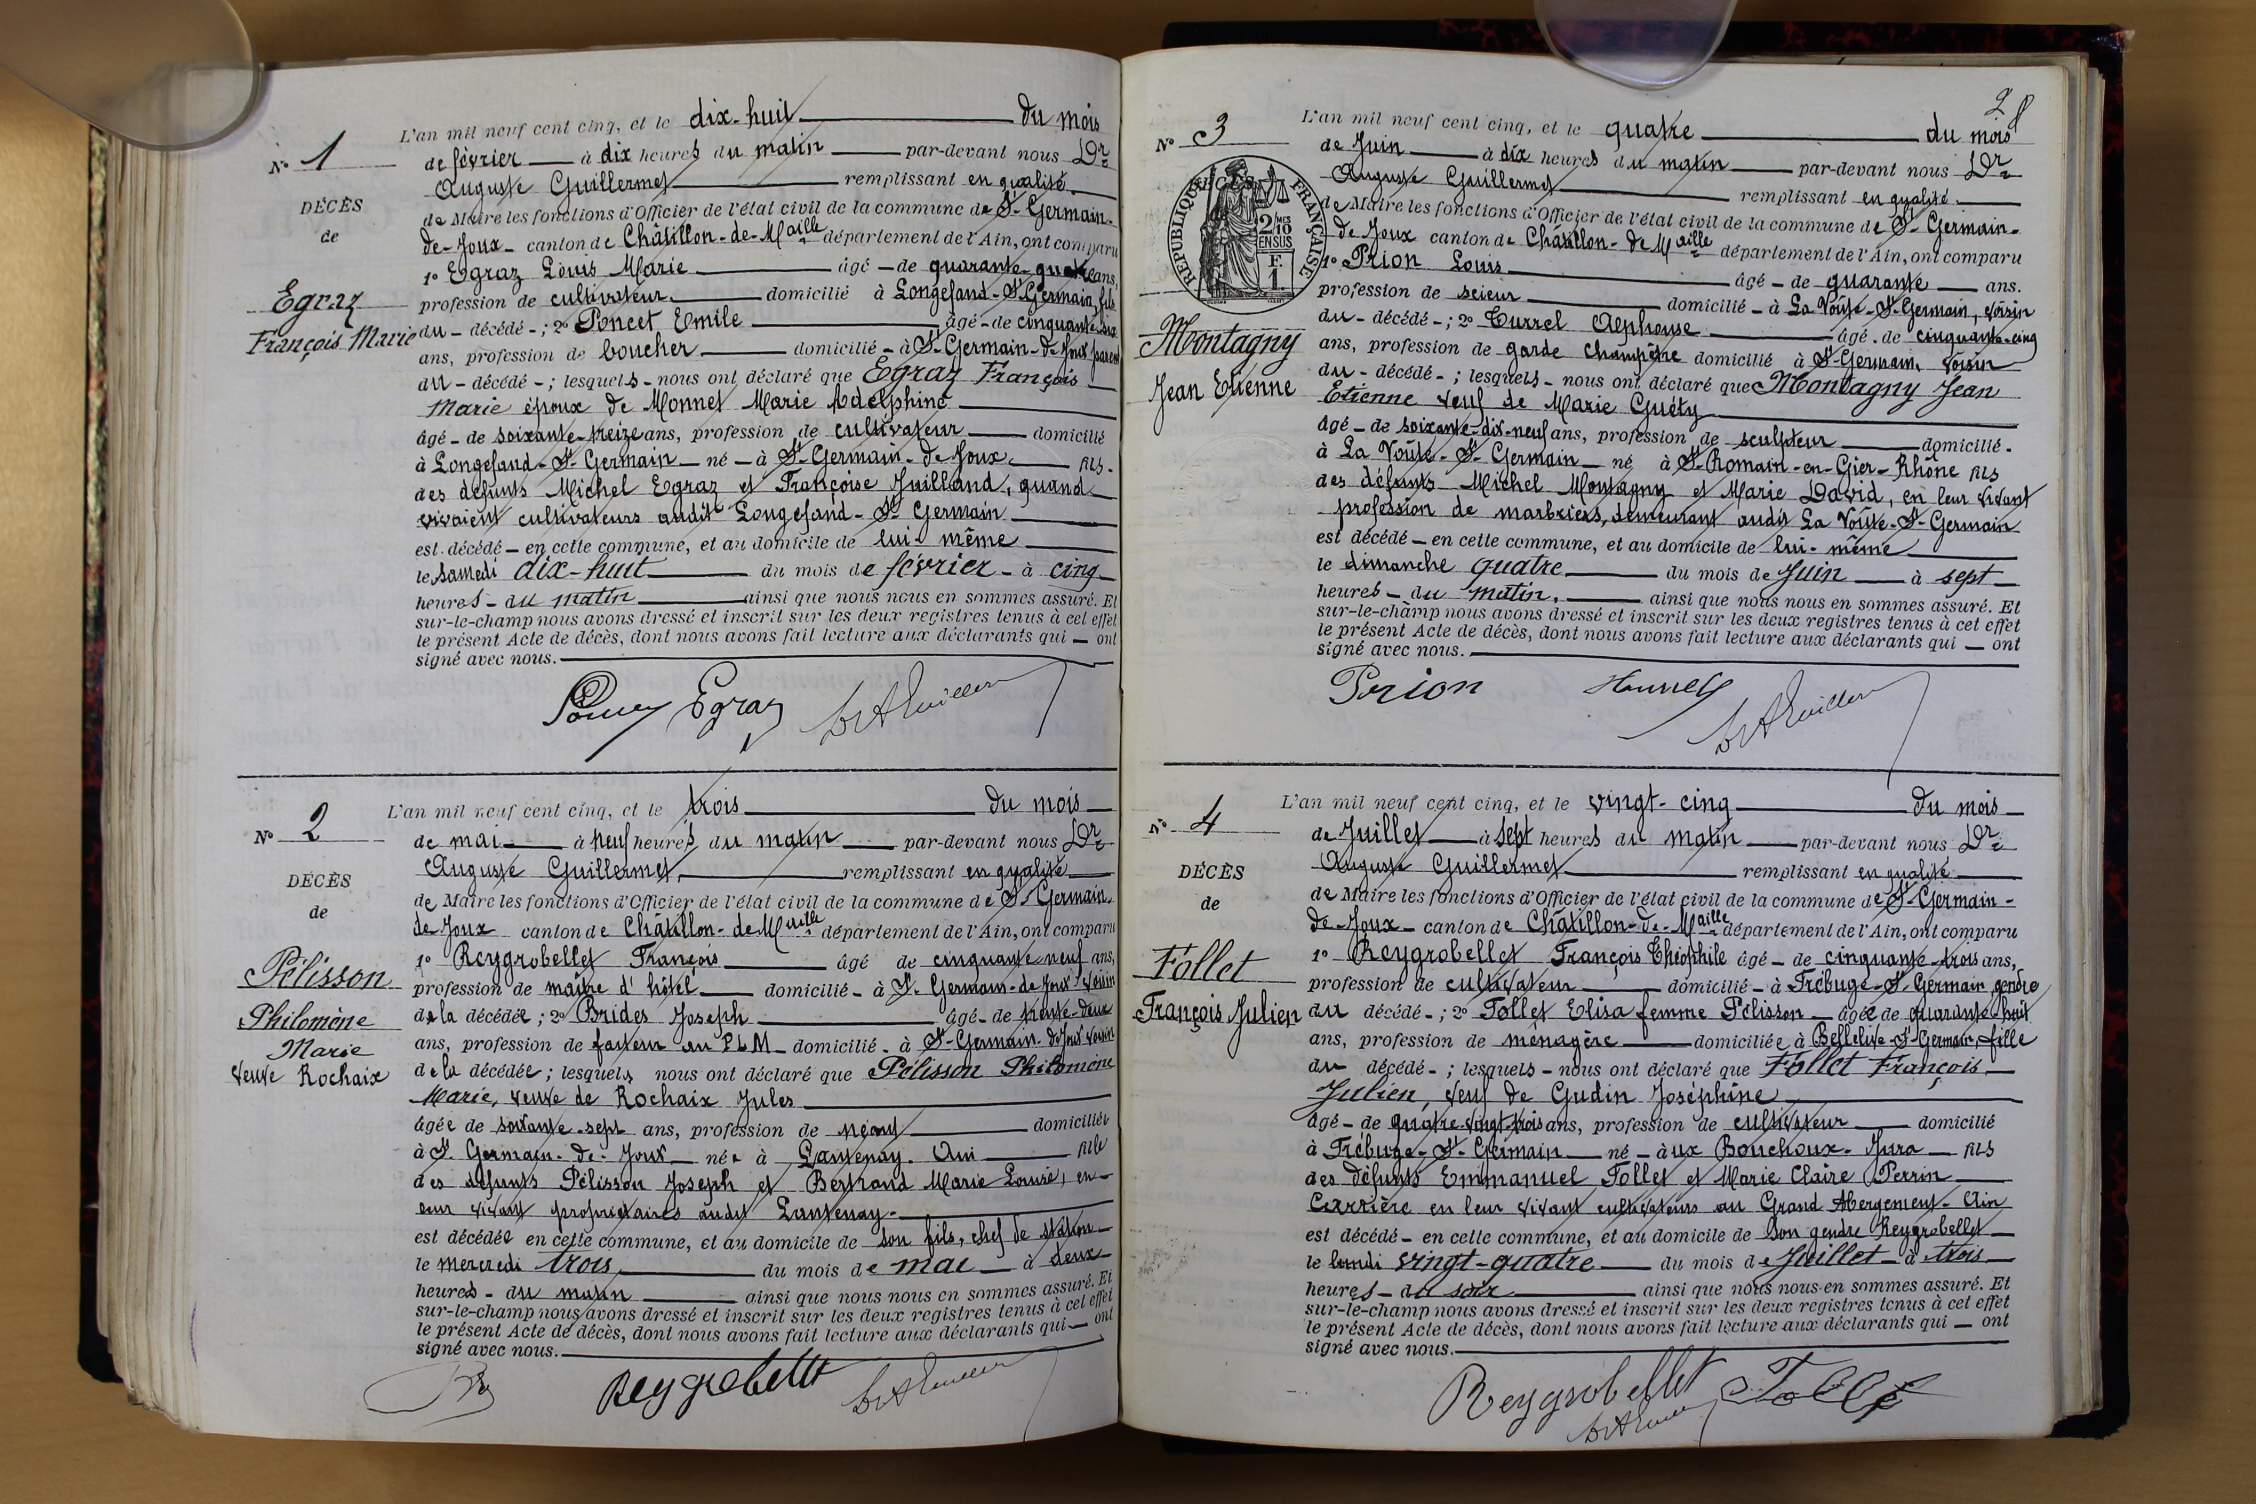 N° 1
DÉCÈS
de
Egraz
François Marie
L'an mil neuf cent cinq, et le dix-huit du mois
de février à dix heures du matin par-devant nous Dr
Auguste Guillermet remplissant en qualité
de Maire les fonctions d'Officier de l'état civil de la commune de St-Germain-
de-Joux canton de Châtillon-de-Maille département de l'Ain, ont comparu
1° Egraz Louis Marie âgé de quarante-quatre ans,
profession de cultivateur domicilié à Longefand-St-Germain, fils
du décédé ; 2° Poncet Emile âgé de cinquante-six
ans, profession de boucher domicilié à St-Germain-de-Joux parent
du décédé ; lesquels nous ont déclaré que Egraz François
Marie époux de Monnet Marie Adelphine
âgé de soixante-treize ans, profession de cultivateur domicilié
à Longefand-St-Germain né à St-Germain-de-Joux fils
des défunts Michel Egraz et Françoise Juilland, quand
vivaient cultivateurs audit Longefand-St-Germain
est décédé en cette commune, et au domicile de lui-même
le samedi dix-huit du mois de février à cinq
heures du matin ainsi que nous nous en sommes assuré. Et
sur-le-champ nous avons dressé et inscrit sur les deux registres tenus à cet effet
le présent Acte de décès, dont nous avons fait lecture aux déclarants qui ont
signé avec nous.
Egraz
N° 2
DÉCÈS
de
Pélisson
Philomène
Marie
veuve Rochaix
L'an mil neuf cent cinq, et le trois du mois
de mai à neuf heures du matin par-devant nous Dr
Auguste Guillermet, remplissant en qualité
de Maire les fonctions d'Officier de l'état civil de la commune de St-Germain-
de Joux canton de Châtillon-de Maille département de l'Ain, ont comparu
1° Reygrobellet François âgé de cinquante-neuf ans,
profession de maître d'hôtel domicilié à St-Germain-de Joux voisin
de la décédée ; 2° Brides Joseph âgé de trente-deux
ans, profession de facteur au PLM domicilié à St-Germain-de Joux voisin
de la décédée ; lesquels nous ont déclaré que Pélisson Philomène
Marie, veuve de Rochaix Jules
âgée de soixante-sept ans, profession de néant domiciliée
à St Germain-de-Joux née à Lantenay. Ain fille
des défunts Pélisson Joseph et Bertrand Marie Louise, en
leur vivant propriétaires audit Lantenay.
est décédée en cette commune, et au domicile de son fils, chef de station
le mercredi trois du mois de mai à deux
heures du matin ainsi que nous nous en sommes assuré. Et
sur-le-champ nous avons dressé et inscrit sur les deux registres tenus à cet effet
le présent Acte de décès, dont nous avons fait lecture aux déclarants qui ont
signé avec nous.
Reygrobellet
2
N° 3
RÉPUBLIQUE FRANÇAISE
2/10 MES
EN SUS
F.
1.
Montagny
Jean Etienne
L'an mil neuf cent cinq, et le quatre du mois
de Juin à dix heures du matin par-devant nous Dr
Auguste Guillermet remplissant en qualité
de Maire les fonctions d'Officier de l'état civil de la commune de St-Germain-
de Joux canton de Châtillon-de Maille département de l'Ain, ont comparu
1° Prion Louis âgé de quarante ans.
profession de scieur domicilié à La Voûte-St-Germain, voisin
du décédé ; 2° Turrel Alphonse âgé de cinquante-cinq
ans, profession de garde champêtre domicilié à St-Germain, voisin
du décédé ; lesquels nous ont déclaré que Montagny Jean
Etienne veuf de Marie Guéty
âgé de soixante-dix-neuf ans, profession de sculpteur domicilié
à La Voûte-St-Germain né à St-Romain-en-Gier-Rhône fils
des défunts Michel Montagny et Marie David, en leur vivant
profession de marbriers, demeurant audit La Voûte-St-Germain
est décédé en cette commune, et au domicile de lui-même
le dimanche quatre du mois de Juin à sept
heures du matin. ainsi que nous nous en sommes assuré. Et
sur-le-champ nous avons dressé et inscrit sur les deux registres tenus à cet effet
le présent Acte de décès, dont nous avons fait lecture aux déclarants qui ont
signé avec nous.
Prion
N° 4
DÉCÈS
de
Follet
François Julien
L'an mil neuf cent cinq, et le vingt-cinq du mois
de Juillet à sept heures du matin par-devant nous Dr
Auguste Guillermet remplissant en qualité
de Maire les fonctions d'Officier de l'état civil de la commune de St-Germain-
de-Joux canton de Châtillon-de-Maille département de l'Ain, ont comparu
1° Reygrobellet François Théophile âgé de cinquante-trois ans,
profession de cultivateur domicilié à Trébuge-St-Germain, gendre
du décédé ; 2° Follet Elisa femme Pélisson âgée de quarante-huit
ans, profession de ménagère domiciliée à Bellelive-St-Germain, fille
du décédé ; lesquels nous ont déclaré que Follet François
Julien, veuf de Gudin Joséphine
âgé de quatre-vingt-trois ans, profession de cultivateur domicilié
à Trébuge-St-Germain né aux Bouchoux-Jura fils
des défunts Emmanuel Follet et Marie Claire Perrin
Carrière en leur vivant cultivateurs au Grand Abergement-Ain
est décédé en cette commune, et au domicile de son gendre Reygrobellet
le lundi vingt-quatre du mois de Juillet à trois
heures du soir ainsi que nous nous en sommes assuré. Et
sur-le-champ nous avons dressé et inscrit sur les deux registres tenus à cet effet
le présent Acte de décès, dont nous avons fait lecture aux déclarants qui ont
signé avec nous.
Reygrobellet